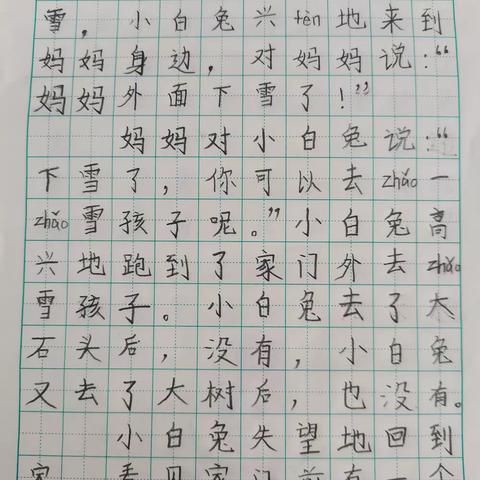 雪，小白兔兴tèn地来到
妈妈身边，对妈妈说：“
妈妈外面下雪了！”
妈妈对小白兔说：“
下雪了，你可以去zhǎo一
zhǎo雪孩子呢。”小白兔高
兴地跑到了家门外去zhǎo
雪孩子。小白兔去了大
石头后，没有，小白兔
又去了大树后，也没有。
小白兔失望地回到
家，看见家门前有一个